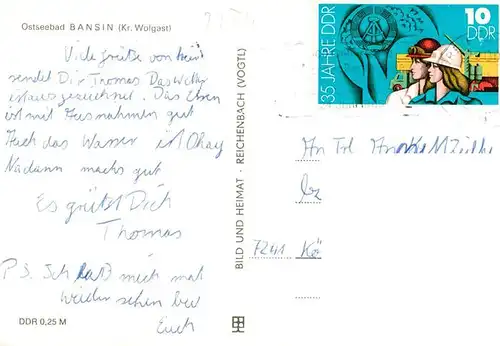 Ostseebad BANSIN (Kr. Wolgast)
Viele Grüße von hier
sendet Dir Thomas Das Wetter
ist ausgezeichnet. Das Essen
ist mit Ausnahmen gut
Auch das Wasser ist Okay
Nadann machs gut
Es grüßt Dich
Thomas
P S. Ich laß mich mal
wieder sehen bei
Euch
DDR 0,25 M
BILD UND HEIMAT · REICHENBACH (VOGTL)
35 JAHRE DDR
10
DDR
An Frl
7241